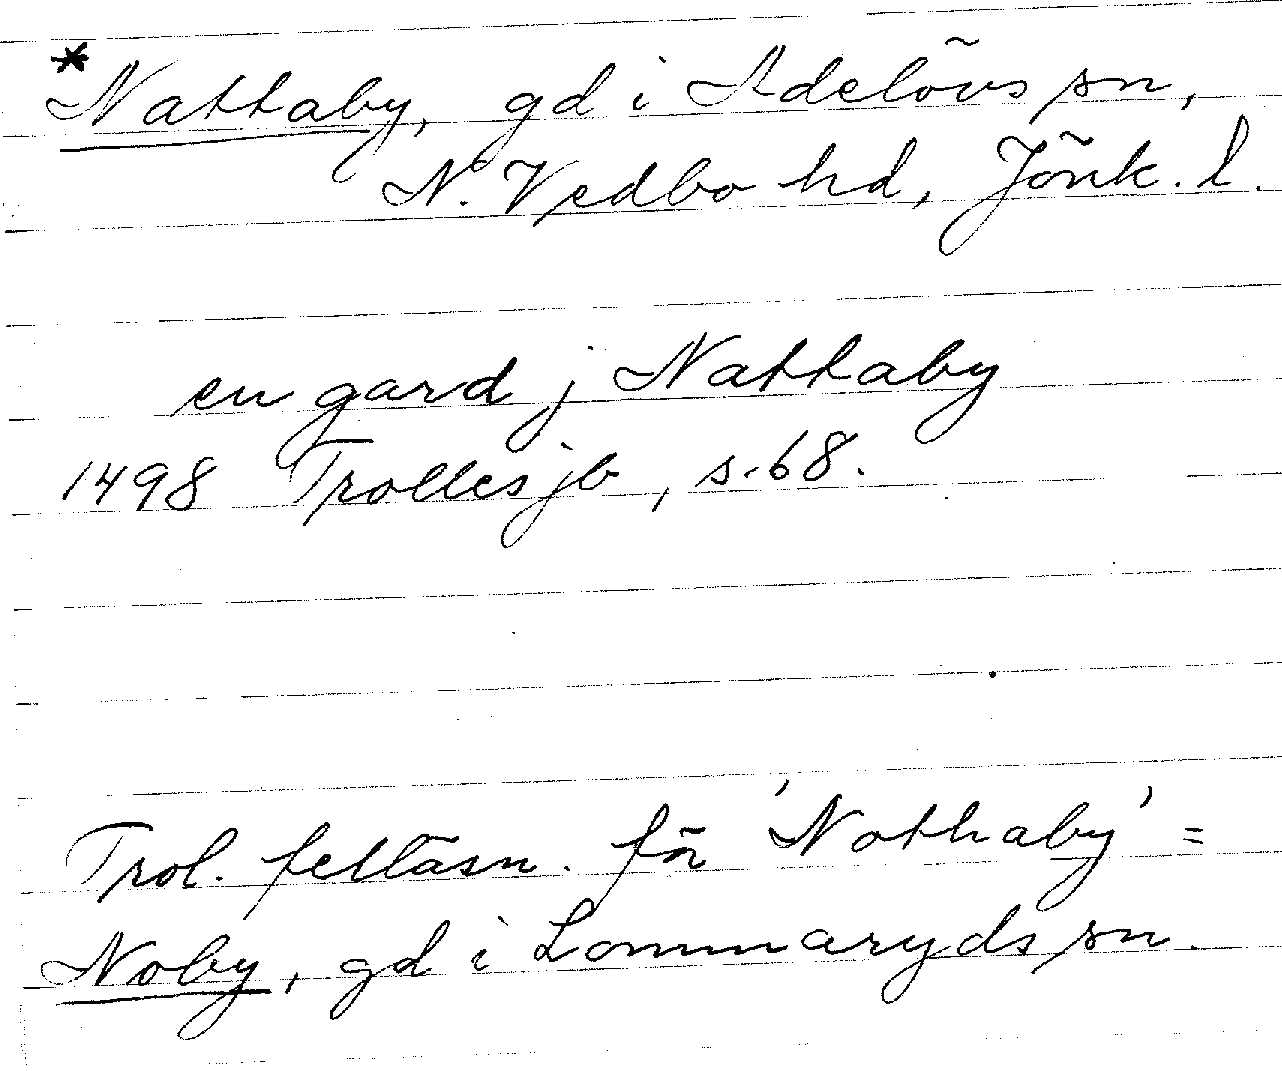 *Nattaby, gd i Adelövs sn,
N. Vedbo hd, Jönk. l.
en gard j Nattaby
1498 Trolles jb, s. 68.
Trol. felläsn. för 'Nothaby' =
Noby, gd i Lommaryds sn.